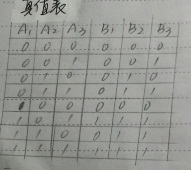 真值表
A₁ A₂ A₃ B₁ B₂ B₃
0 0 0 0 0 0
0 0 1 0 0 1
0 1 0 0 1 0
0 1 1 0 1 1
1 0 0 0 0 0
1 0 1 1 1
1 1 0 0 1 1
1 1 1 1 1 1